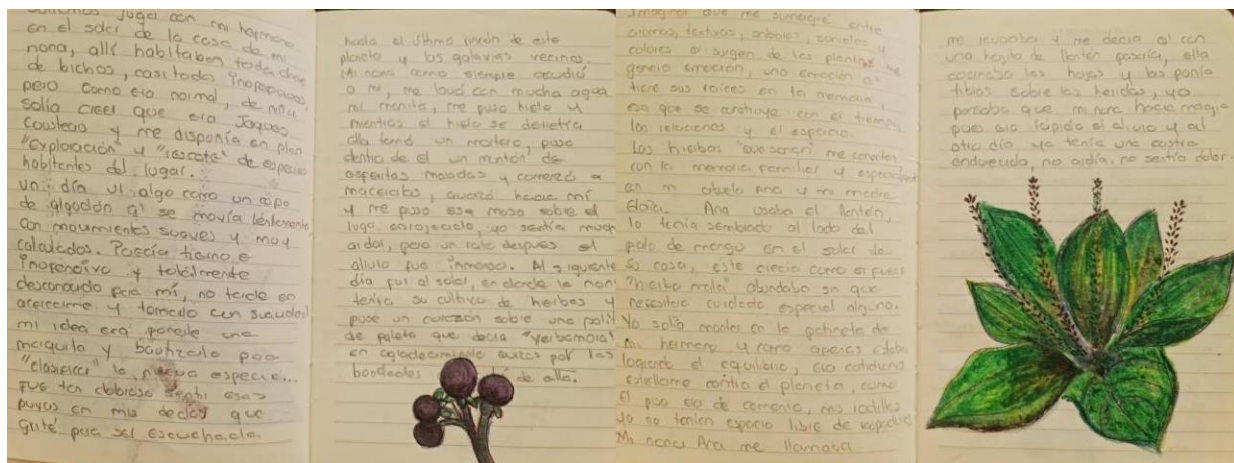 jugar con mi hermano
en el solar de la casa de mi
nona, allí habitaban toda clase
de bichos, casi todos inofensivos,
pero como era normal, de niña
solía creer que era Jaques
Cousteau y me disponía en plan
"Exploración" y "rescate" de especies
habitantes del lugar.
un día vi algo como un copo
de algodón q' se movía lentamente
con movimientos suaves y muy
calculados. Parecía tierno e
inofensivo y totalmente
desconocido para mí, no tardé en
acercarme y tomarlo con suavidad
mi idea era ponerle una
maiquita y bautizarlo para
"clasificar" la nueva especie...
Fue tan doloroso sentir esas
puyas en mis dedos que
grité para ser escuchada
hasta el último rincón de este
planeta y las galaxias vecinas.
Mi nona como siempre acudió
a mí, me lavó con mucha agua
mi manita, me puso hielo y
mientras el hielo se derretía
ella tomó un mortero, puso
dentro de el un montón de
esferitas moradas y comenzó a
macerarlas, avanzó hacia mí
y me puso esa masa sobre el
lugar enrojecido, yo sentía mucho
ardor, pero un rato después el
alivio fue inmenso. Al siguiente
día fui al solar, en donde la nona
tenía su cultivo de hierbas y
puse un corazón sobre una palit
de paleta que decía "Yerbamora"
en agradecimiento quizás por las
bondades de ella.
Imaginar que me sumergía entre
aromas, texturas, sabores, sonidos y
colores q' surgen de las plantas me
genera emoción, una emoción q'
tiene sus raíces en la memoria,
esa que se construye con el tiempo,
las relaciones y el espacio.
Las hierbas "que sanan" me conectan
con la memoria familiar y especialmente
con mi abuela Ana y mi madre
Eloísa. Ana usaba el llantén,
lo tenía sembrado al lado del
palo de mango en el solar de
su casa, este crecía como si fuera
"hierba mala" abundaba sin que
necesitara cuidado especial alguno.
Yo solía montar en la patineta de
mi hermano y como apenas estaba
logrando el equilibrio, era cotidiano
estrellarme contra el planeta, como
el piso era de cemento, mis rodillas
ya no tenían espacio libre de raspaduras
Mi nona Ana me llamaba
me revisaba y me decía q' con
una hojita de llantén pasaría, ella
cocinaba las hojas y las ponía
tibias sobre las heridas, yo
pensaba que mi nona hacía magia
pues era rápido el alivio y al
otro día ya tenía una costra
endurecida, no ardía, no sentía dolor.